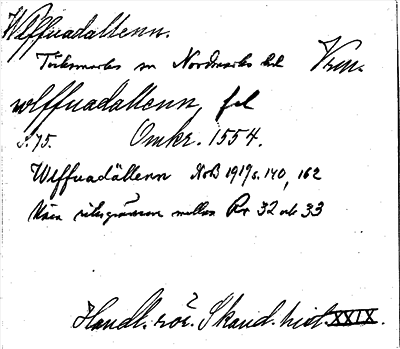 Wlffuadallenn.
Töcksmarks sn Nordmarks hd Vrm.
wlffuadallenn, fol
s. 75. Omkr. 1554.
Wlffuadällenn NoB 1919 s. 140, 162
Nära riksgränsen mellan Rr 32 och 33
Handl. rör. Skand. hist. XXIX.